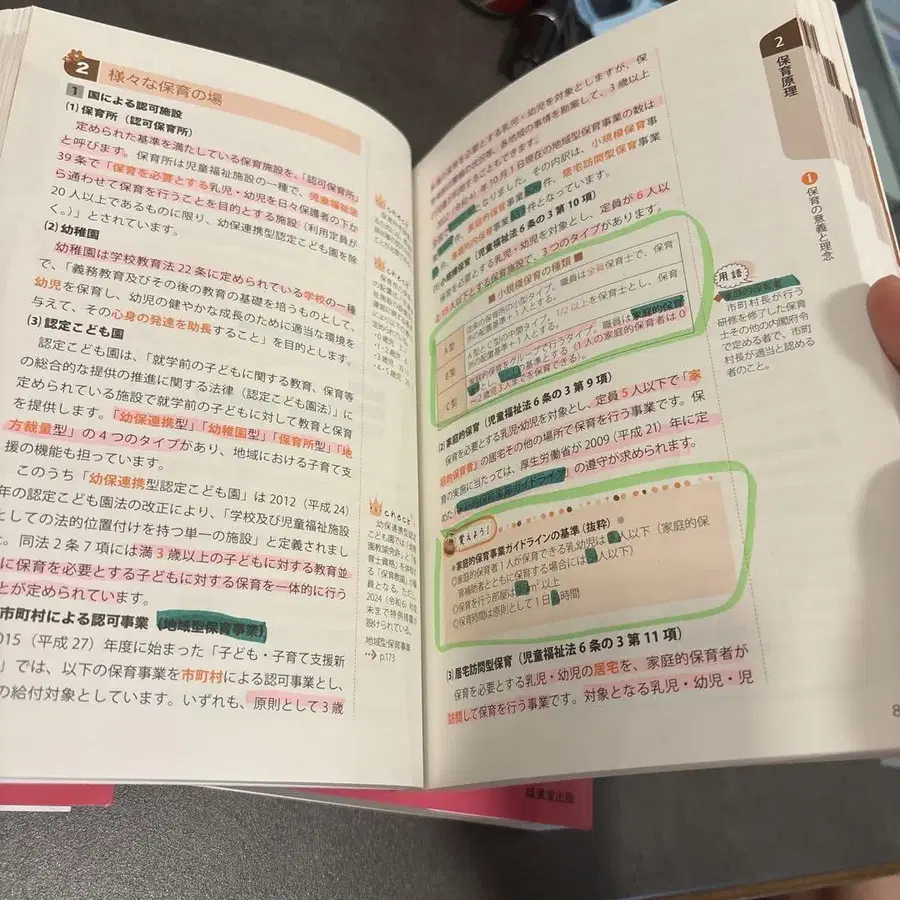 2 様々な保育の場
1 国による認可施設
(1) 保育所（認可保育所）
定められた基準を満たしている保育施設を、「認可保育所」
と呼びます。保育所は児童福祉施設の一種で、児童福祉法
39条で「保育を必要とする乳児・幼児を日々保護者の下か
ら通わせて保育を行うことを目的とする施設（利用定員が
20人以上であるものに限り、幼保連携型認定こども園を除
く。）」とされています。
(2) 幼稚園
幼稚園は学校教育法22条に定められている学校の一種
で、「義務教育及びその後の教育の基礎を培うものとして、
幼児を保育し、幼児の健やかな成長のために適当な環境を
与えて、その心身の発達を助長すること」を目的とします。
(3) 認定こども園
認定こども園は、「就学前の子どもに関する教育、保育等
の総合的な提供の推進に関する法律（認定こども園法）」に
定められている施設で就学前の子どもに対して教育と保育
を提供します。「幼保連携型」「幼稚園型」「保育所型」「地
方裁量型」の4つのタイプがあり、地域における子育て支
援の機能も担っています。
このうち「幼保連携型認定こども園」は2012（平成24）
年の認定こども園法の改正により、「学校及び児童福祉施設
としての法的位置付けを持つ単一の施設」と定義されまし
。同法2条7項には満3歳以上の子どもに対する教育並
に保育を必要とする子どもに対する保育を一体的に行う
とが定められています。
市町村による認可事業（地域型保育事業）
015（平成27）年度に始まった「子ども・子育て支援新
」では、以下の保育事業を市町村による認可事業とし、
の給付対象としています。いずれも、原則として3歳
check
check
check
幼保連携型認定
こども園では「幼稚
園教諭免許」「保
育士資格」を併有
する「保育教諭」の職
員となる。ただし、
2024（令和6）年度
末まで特例措置が
設けられている。
地域型保育事業
p.173
保育を必要とする乳児・幼児を対象としますが、保
各地域の事情を勘案して、3歳以上
もできます。
10月1日現在の地域型保育事業の数は
となりました。その内訳は、小規模保育事
件、家庭的保育事業 件、居宅訪問型保育事業
件、事業所内保育事業 件となっています。
(1) 小規模保育（児童福祉法6条の3第10項）
保育を必要とする乳児・幼児を対象とし、定員が6人以
上19人以下とする保育施設で、3つのタイプがあります。
■ 小規模保育の種類 ■
A型 従来の保育所の小型タイプ。職員は全員保育士で、保育
所の配置基準+1人とする。
B型 A型とC型の中間タイプ。1/2以上を保育士とし、保育
所の配置基準+1人とする。
C型 家庭的保育をグループで行うタイプ。職員は家庭的保育
の基準とする（1人の家庭的保育者は0
～2歳児3人までを保育できる）。
(2) 家庭的保育（児童福祉法6条の3第9項）
保育を必要とする乳児・幼児を対象とし、定員5人以下で「家
庭的保育者」の居宅その他の場所で保育を行う事業です。保
育の実施に当たっては、厚生労働省が2009（平成21）年に定
めた の遵守が求められます。
覚えよう！
●家庭的保育事業ガイドラインの基準（抜粋）●
◎家庭的保育者1人が保育できる乳幼児は 人以下（家庭的保
育補助者とともに保育する場合には 人以下）
◎保育を行う部屋は m²以上
◎保育時間は原則として1日 時間
(3) 居宅訪問型保育（児童福祉法6条の3第11項）
保育を必要とする乳児・幼児の居宅を、家庭的保育者が
訪問して保育を行う事業です。対象となる乳児・幼児・児
2
保育原理
1 保育の意義と理念
用語
家庭的保育者
市町村長が行う
研修を修了した保育
士その他の内閣府令
で定める者で、市町
村長が適当と認める
者のこと。
8
成美堂出版